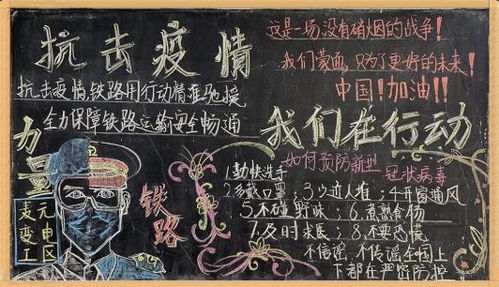 抗击疫情
这是一场没有硝烟的战争!
我们蒙面,只为了更好的未来!
中国!加油!!
抗击疫情,铁路用行动精准驰援
全力保障铁路运输安全畅通
力量
我们在行动
如何预防新型冠状病毒
1.勤快洗手
2.多戴口罩;3.少边人堆;4.开窗通风
5.不碰野味;6.煮熟食物
7.及时求医;8.不要恐慌
不信谣,不传谣全国上
下都在严密防控
铁路